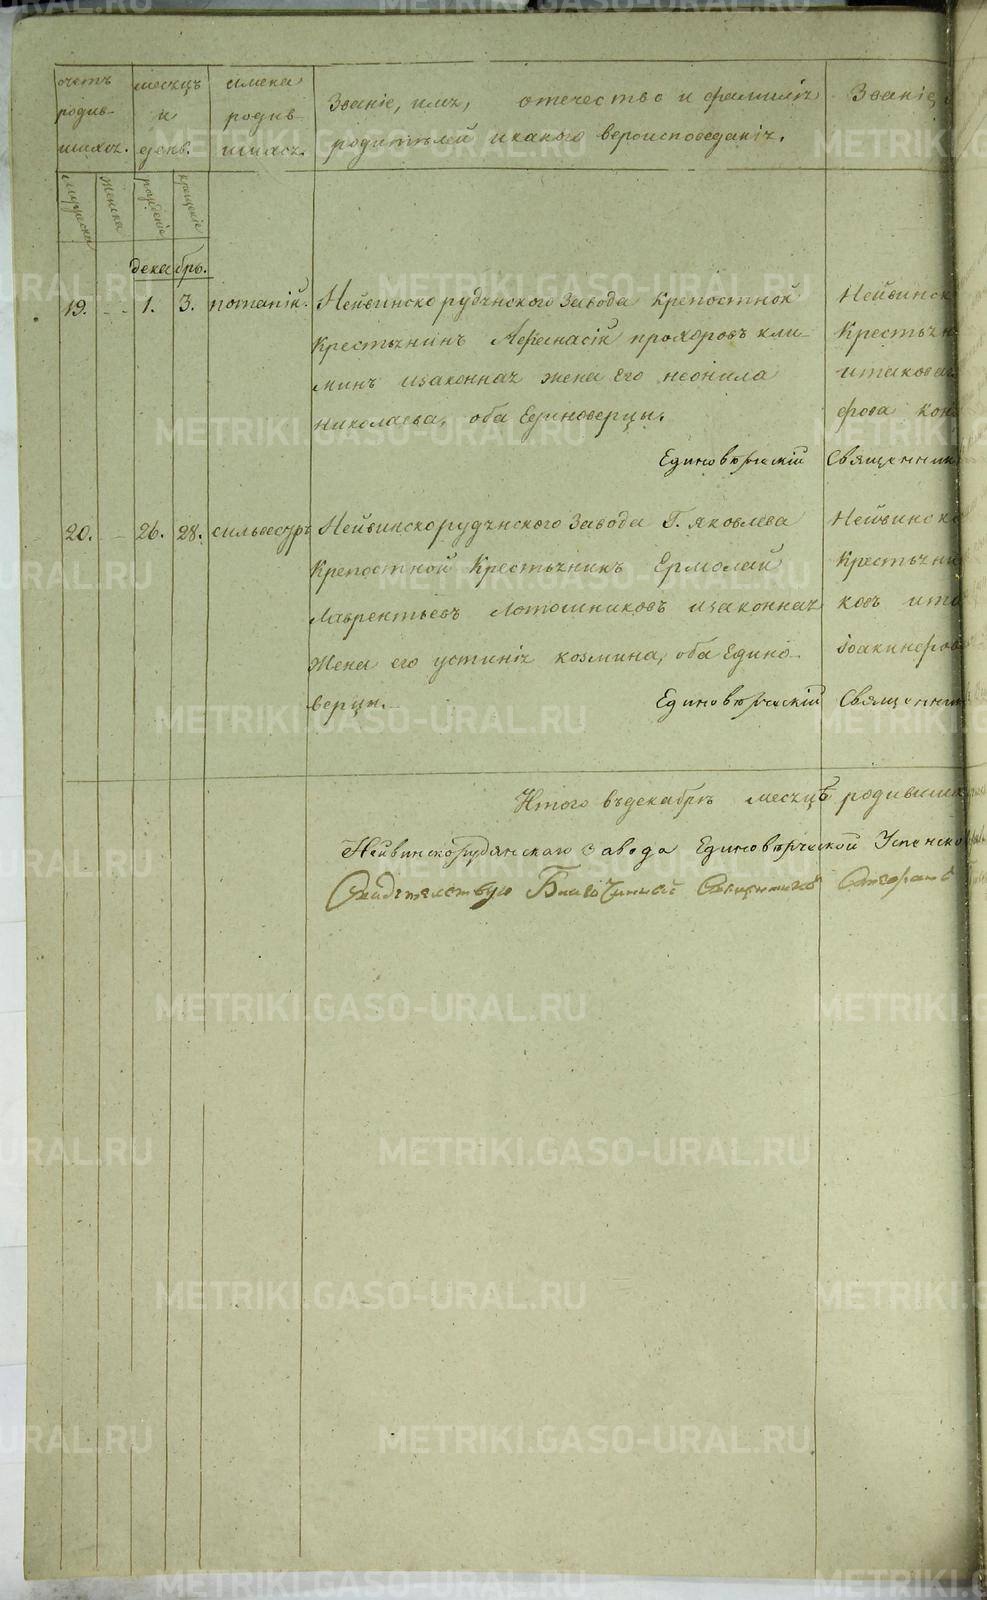 счетъ родив- шихся.
месяцъ и денв.
имена родив- шихся.
Званіе, имя, отечество и фамилія
родителей икакого вероисповеданія.
Званіе,
мужеска
женска
рожденіе
крещеніе
декабрь.
19. - - 1. 3. потапій. Нейвинскорудянского Завода Крепостной
Крестьянинъ Афанасій прохоровъ кли-
минъ изаконная жена Его неонила
николаева, оба Единоверцы.
Нейвинск
Крестьян
итаковаг
фова кон
Единовѣрческій Священник
20. - 26. 28. сильвестръ Нейвинскорудянского Завода Г. яковлева
Крепостной Крестьянинъ Ермолай
Лаврентьевъ Лотошниковъ изаконная
Жена его устинія козмина, оба Едино-
верцы.
Нейвинско
Крестьяни
ковъ ита
Іоакинфов
Единовѣрческій Священни
Итого въдекабрѣ месяцѣ родивших
Нейвинскорудянскаго завода Единовѣрческой Успенско
Свидѣтельствую Благочинный Священникъ
METRIKI.GASO-URAL.RU